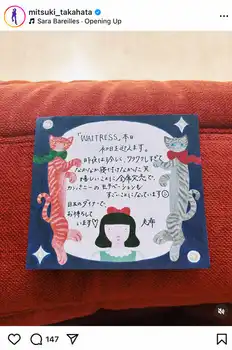 mitsuki_takahata
Sara Bareilles • Opening Up
「WAITRESS」本日
初日を迎えます。
昨夜は久しぶりにワクワクしすぎて
なかなか寝付けなかった笑
嬉しいことに全席完売で、
カンパニーのモチベーションも
すごいことになっています
日本のダイナーで、
お待ちして
います♡
充希
147